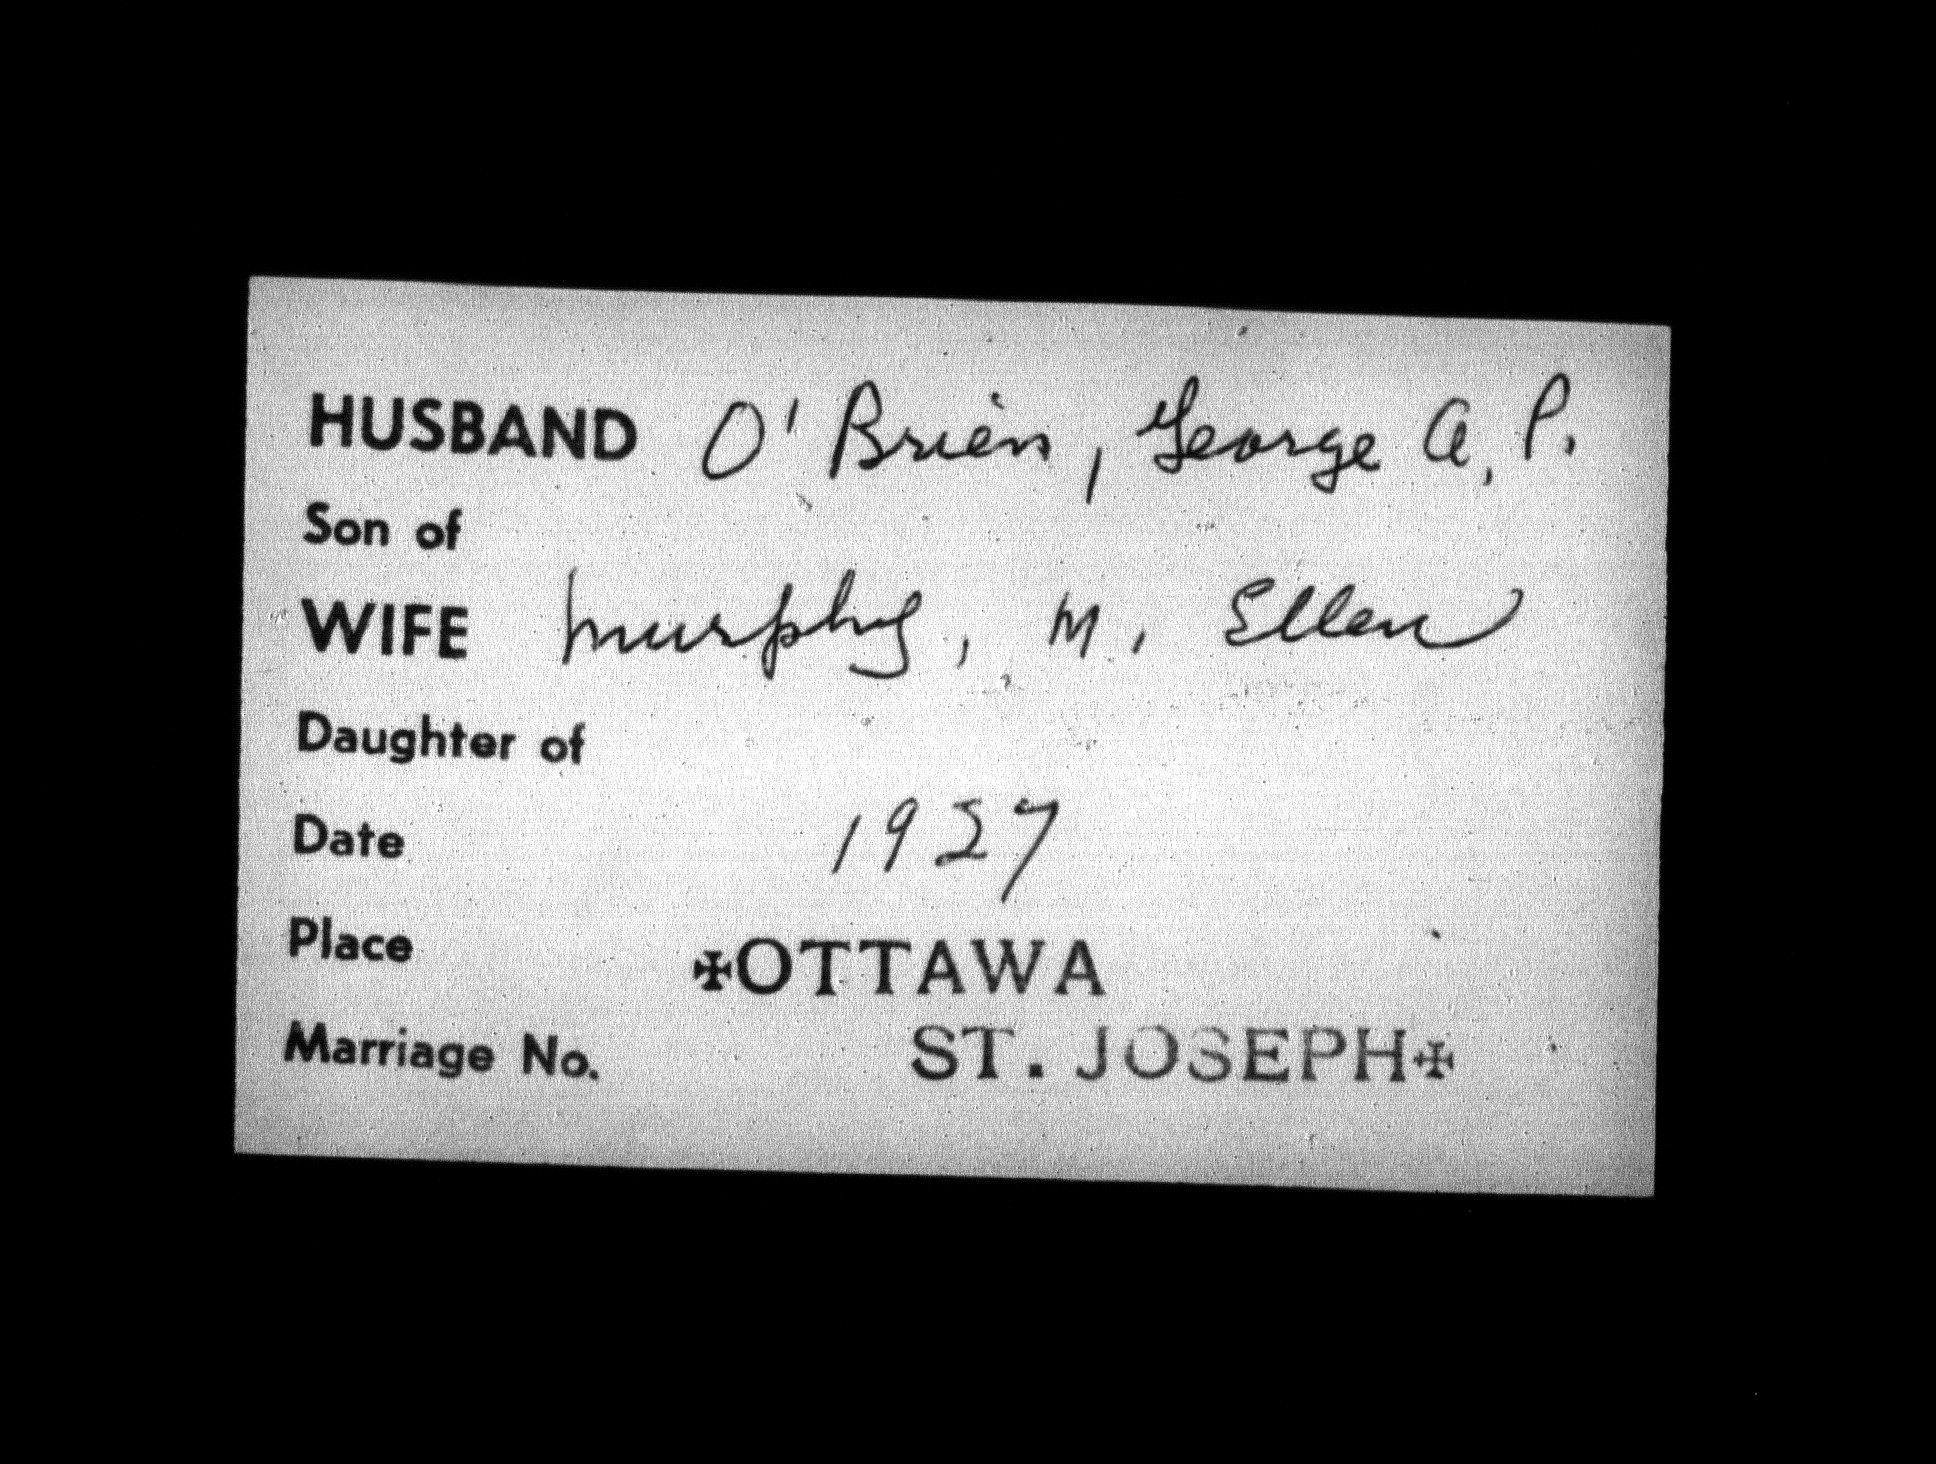 HUSBAND O'Brien, George A. P.
Son of
WIFE Murphy, M. Ellen
Daughter of
Date 1927
Place ✠OTTAWA
Marriage No. ST. JOSEPH✠